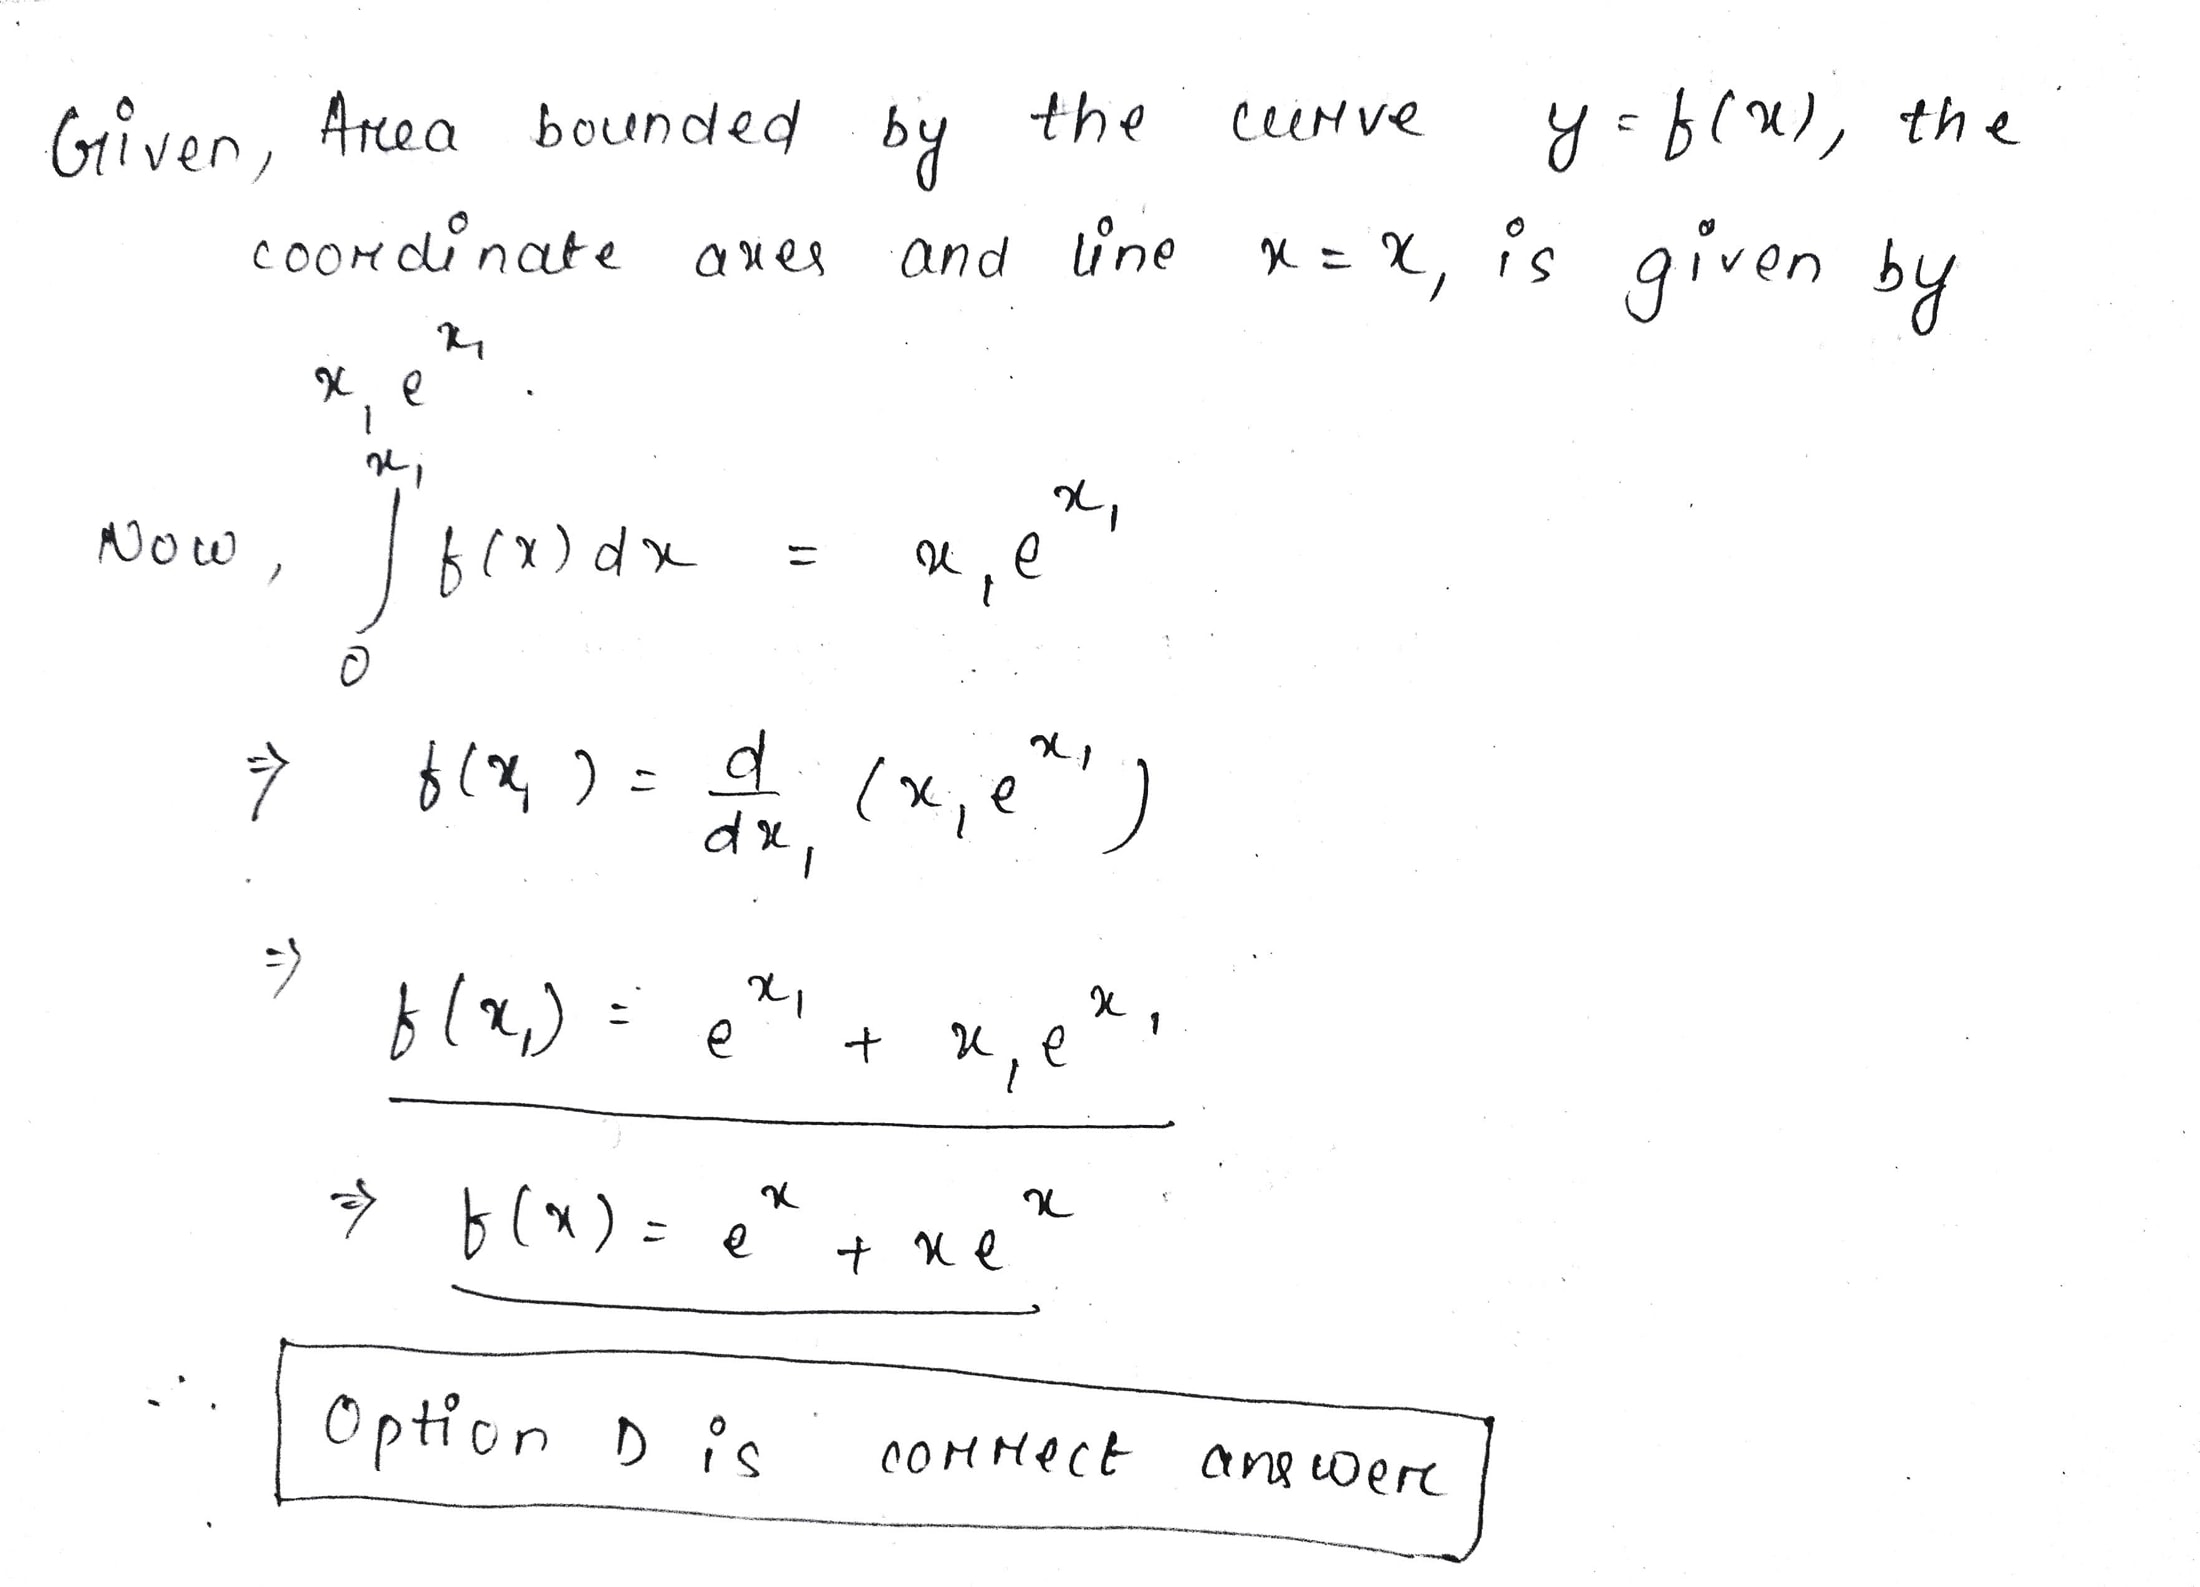 Given, Area bounded by the curve y = f(x), the
coordinate axes and line x = x₁ is given by
x₁e^x₁.
Now, ∫₀^x₁ f(x) dx = x₁e^x₁
⇒ f(x₁) = d/dx₁ (x₁e^x₁)
⇒ f(x₁) = e^x₁ + x₁e^x₁
⇒ f(x) = e^x + xe^x
∴ Option D is correct answer